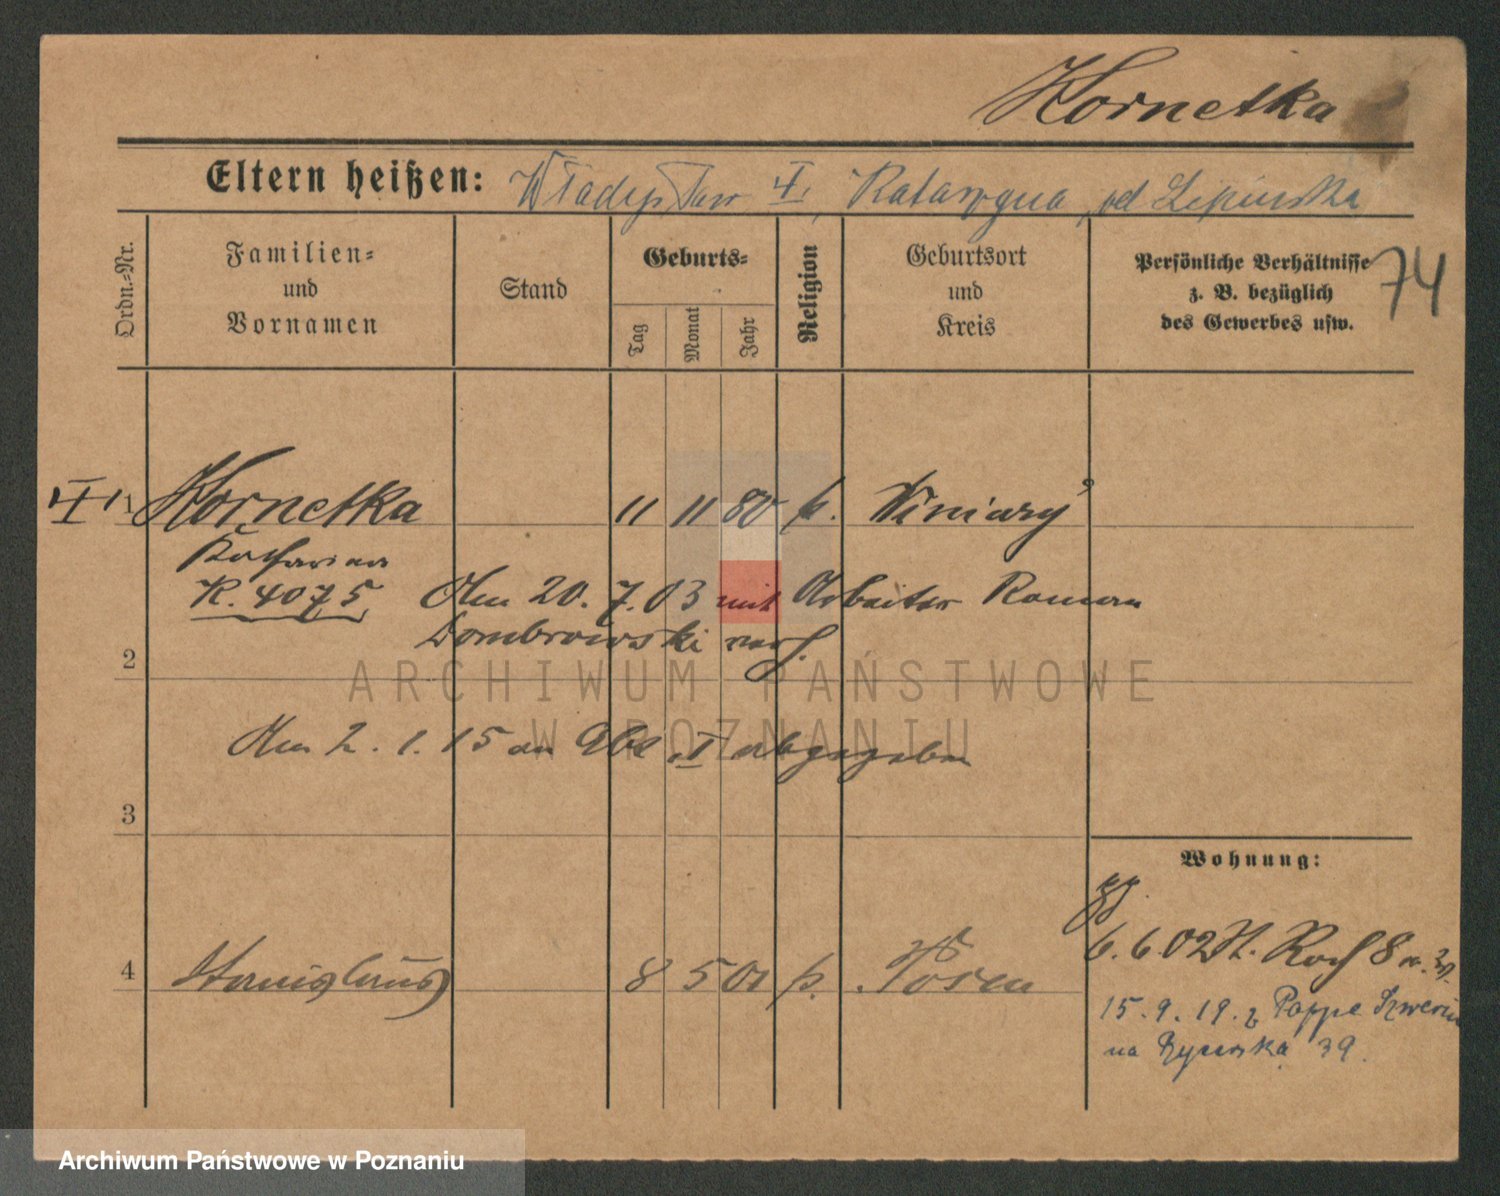 Kornetka
Eltern heißen: Władysław †, Katarzyna, od Lipinski
74
Ordn.-Nr.
Familien- und Vornamen
Stand
Geburts-
Tag
Monat
Jahr
Religion
Geburtsort und Kreis
Persönliche Verhältnisse
z. B. bezüglich
des Gewerbes usw.
1 Kornetka 11 11 80 k. Winiary
Katharina
K. 4075 Am 20. 7. 03 mit Arbeiter Roman
Dombrowski verh.
2
Am 2. 1. 15 an Abt. I abgegeben
3
Wohnung:
6. 6. 02 St. Roch 8
4 Stanislaus 8 5 01 k. Posen
15. 9. 19. z Poppe
na Rycerska 39.
ARCHIWUM PAŃSTWOWE
W POZNANIU
Archiwum Państwowe w Poznaniu